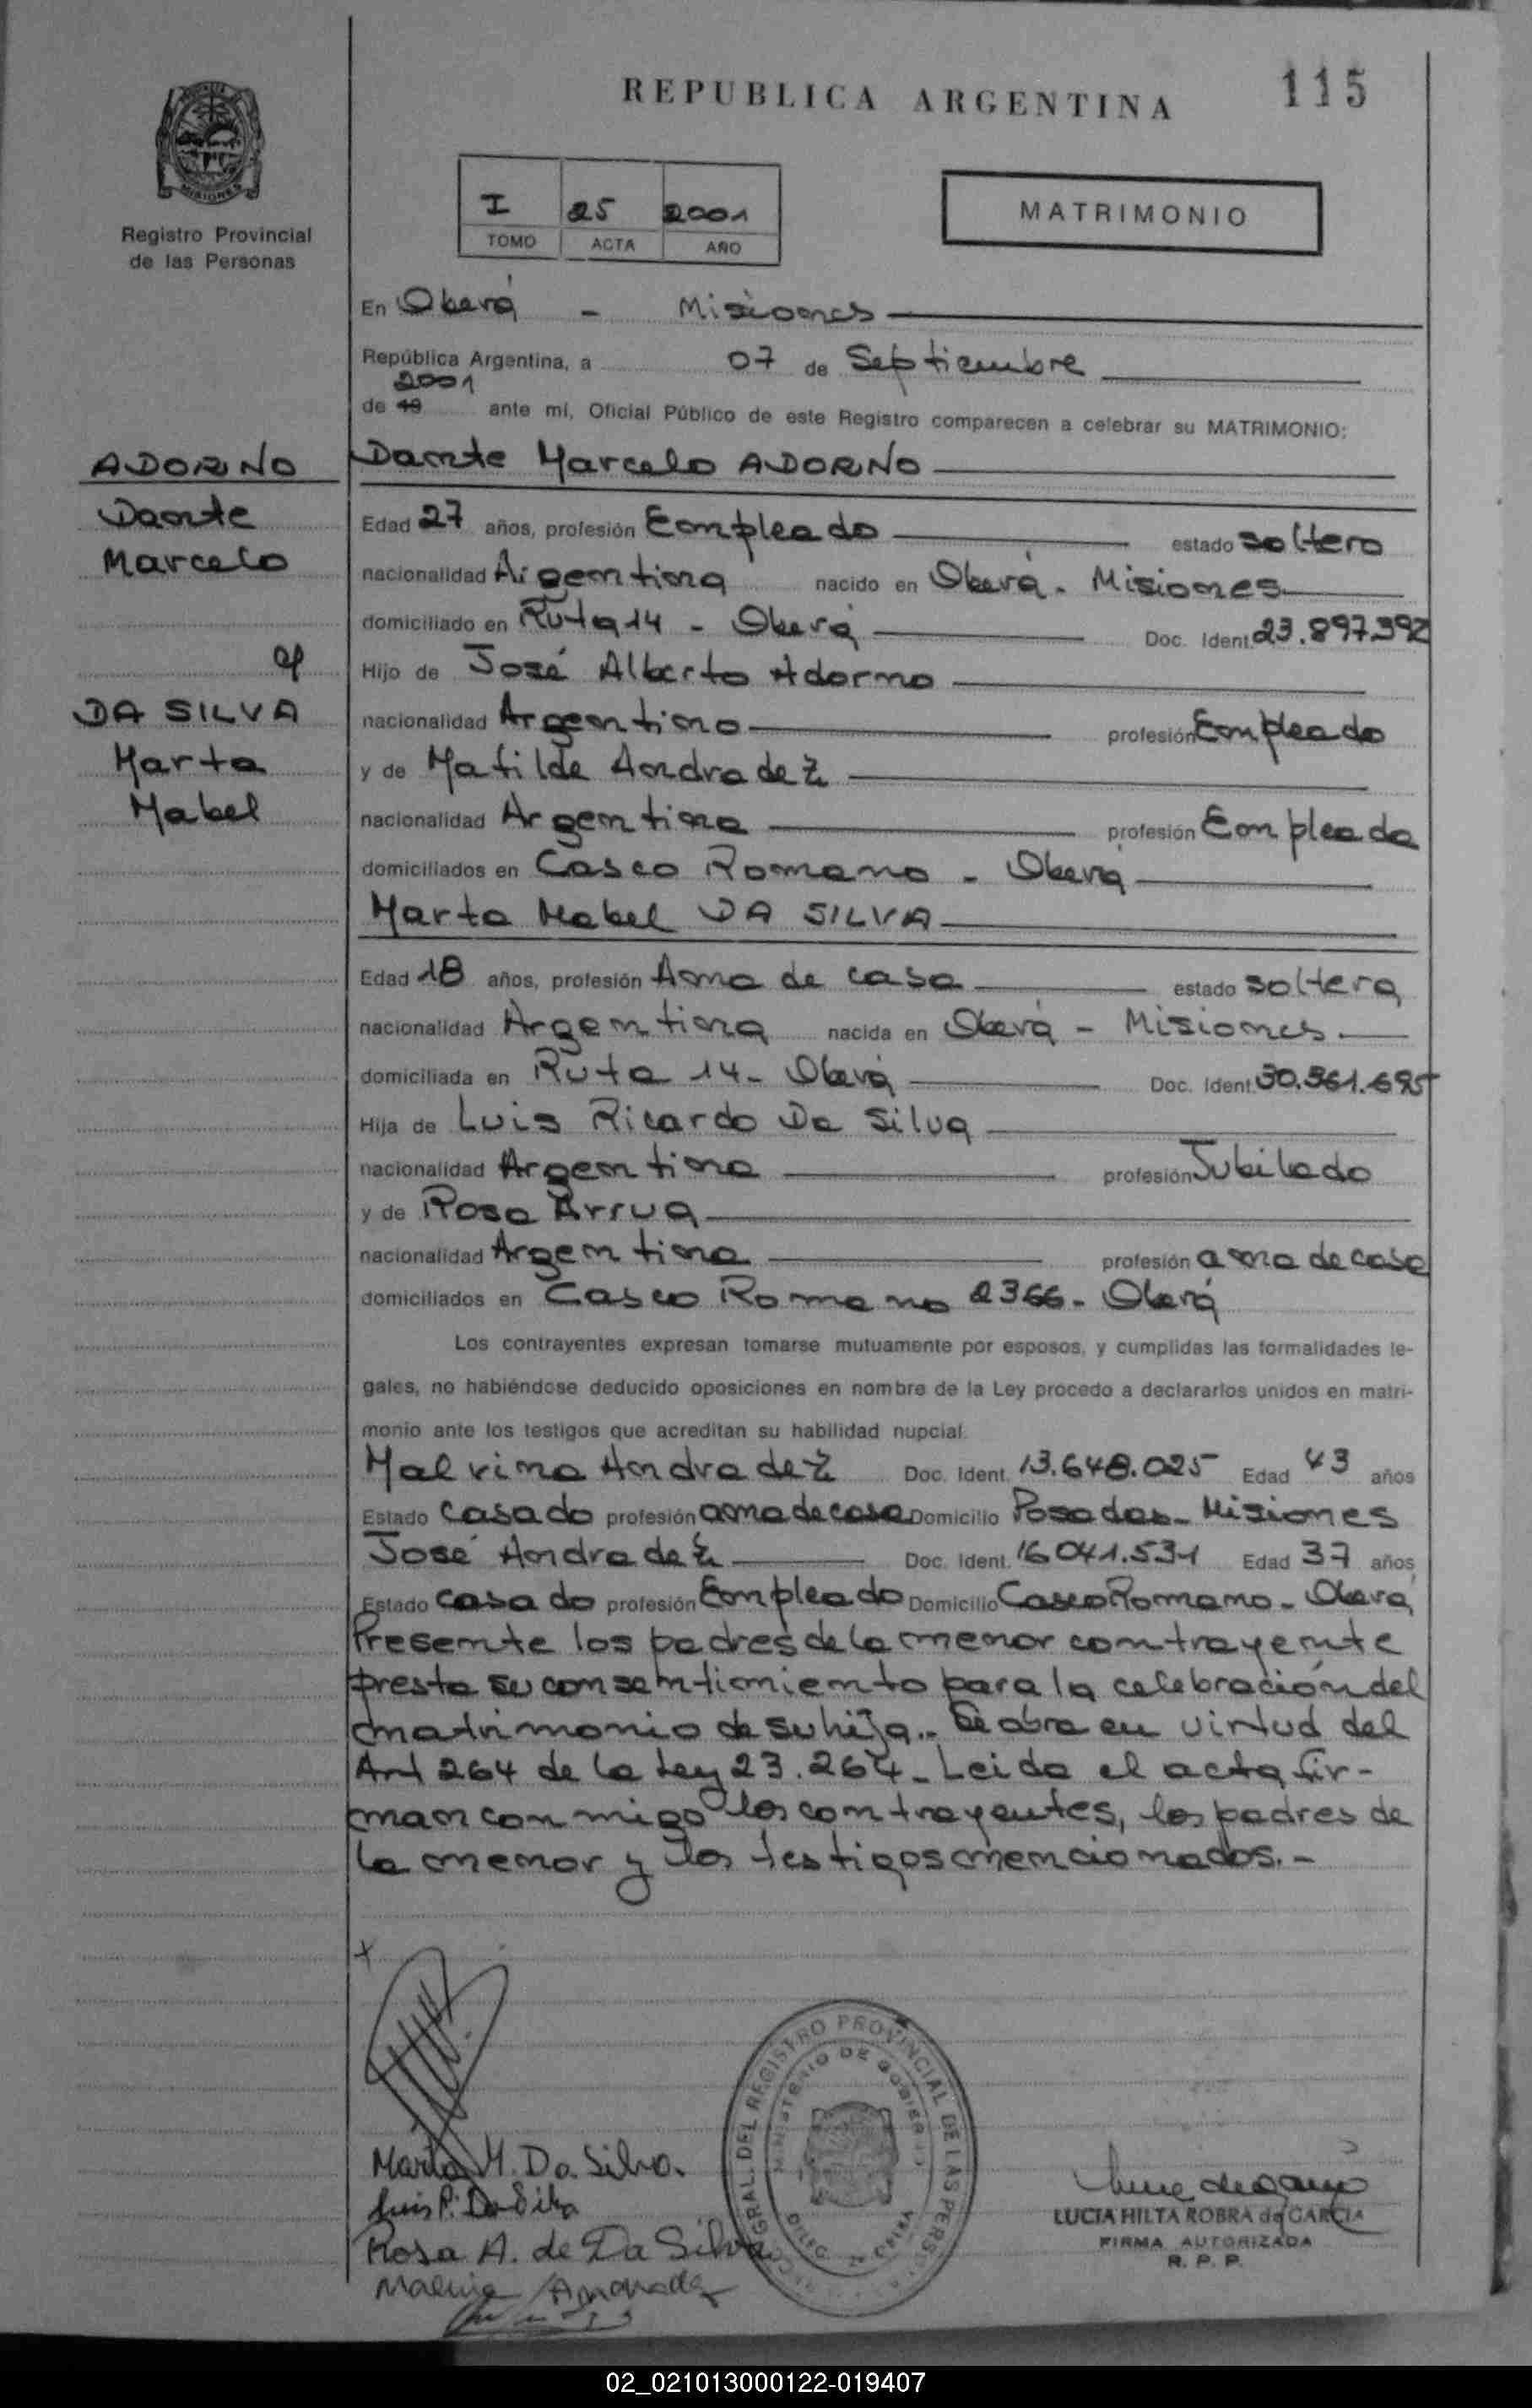 REPUBLICA ARGENTINA
115
Registro Provincial
de las Personas
I 25 2001
TOMO ACTA AÑO
MATRIMONIO
En Oberá - Misiones
República Argentina, a 07 de Septiembre
2001
de 19 ante mí, Oficial Público de este Registro comparecen a celebrar su MATRIMONIO:
ADORNO
Dante
Marcelo
DA SILVA
Marta
Mabel
Dante Marcelo ADORNO
Edad 27 años, profesión Empleado estado soltero
nacionalidad Argentina nacido en Oberá - Misiones
domiciliado en Ruta 14 - Oberá Doc. Ident. 23.897.392
Hijo de José Alberto Adorno
nacionalidad Argentino profesión Empleado
y de Matilde Andradez
nacionalidad Argentina profesión Empleada
domiciliados en Casco Romano - Oberá
Marta Mabel DA SILVA
Edad 18 años, profesión Ama de casa estado soltera
nacionalidad Argentina nacida en Oberá - Misiones
domiciliada en Ruta 14 - Oberá Doc. Ident. 30.361.695
Hija de Luis Ricardo Da Silva
nacionalidad Argentina profesión Jubilado
y de Rosa Arrua
nacionalidad Argentina profesión ama de casa
domiciliados en Casco Romano 2366 - Oberá
Los contrayentes expresan tomarse mutuamente por esposos, y cumplidas las formalidades le-
gales, no habiéndose deducido oposiciones en nombre de la Ley procedo a declararlos unidos en matri-
monio ante los testigos que acreditan su habilidad nupcial.
Malvina Andradez Doc. Ident. 13.648.025 Edad 43 años
Estado casado profesión ama de casa Domicilio Posadas - Misiones
José Andradez Doc. Ident. 16041.531 Edad 37 años
Estado casado profesión Empleado Domicilio Casco Romano - Oberá
Presente los padres de la menor contrayente
presta su consentimiento para la celebración del
matrimonio de su hija.- Se obra en virtud del
Art 264 de la Ley 23.264 - Leida el acta fir-
man conmigo los contrayentes, los padres de
la menor y los testigos mencionados.-
Marta M. Da Silva.
Luis R. Da Silva
Rosa A. de Da Silva
Malvina Andradez
GRAL. DEL REGISTRO PROVINCIAL DE LAS PERS
MINISTERIO DE GOBIERNO
LUCIA HILTA ROBRA de GARCIA
FIRMA AUTORIZADA
R. P. P.
02_021013000122-019407